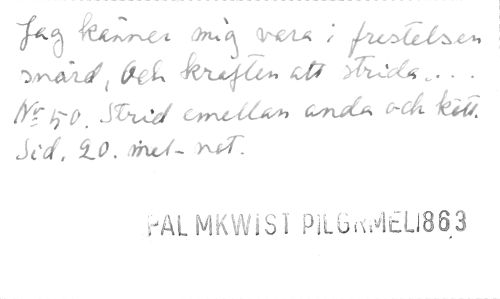 Jag känner mig vara i frestelsen
snärd, Och kraften att strida....
Nr 50. Strid emellan anda och kött.
Sid. 20. mel- not.
PALMKWIST PILGRMEL1863